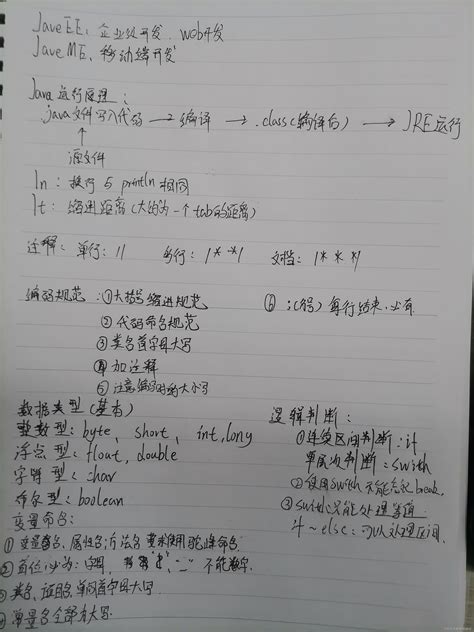 Java EE: 企业级开发、web开发
Java ME: 移动端开发
Java 运行原理:
.java文件写入代码 → 编译 → .class(编译后) → JRE运行
↑
源文件
\n: 换行 与 println 相同
\t: 缩进距离(大约为一个tab的距离)
注释: 单行: // 多行: /* */ 文档: /** */
编码规范: ①大括号缩进规范
②代码命名规范
③类名首字母大写
④加注释
⑤注意编码时的大小写
⑥ ; (分号) 每行结束,必有
数据类型(基本)
整数型: byte、short、int, long
浮点型: float, double
字符型: char
布尔型: boolean
变量命名:
①变量名、属性名,方法名 要求使用驼峰命名
②首位必为: 字母, "_" 不能数字.
类名、首字母大写
常量名全部大写
逻辑判断:
①连续区间判断: if
单层次判断: swith
②使用swith 不能忘记break.
③swith只能处理等值
if ~ else: 可以处理区间.